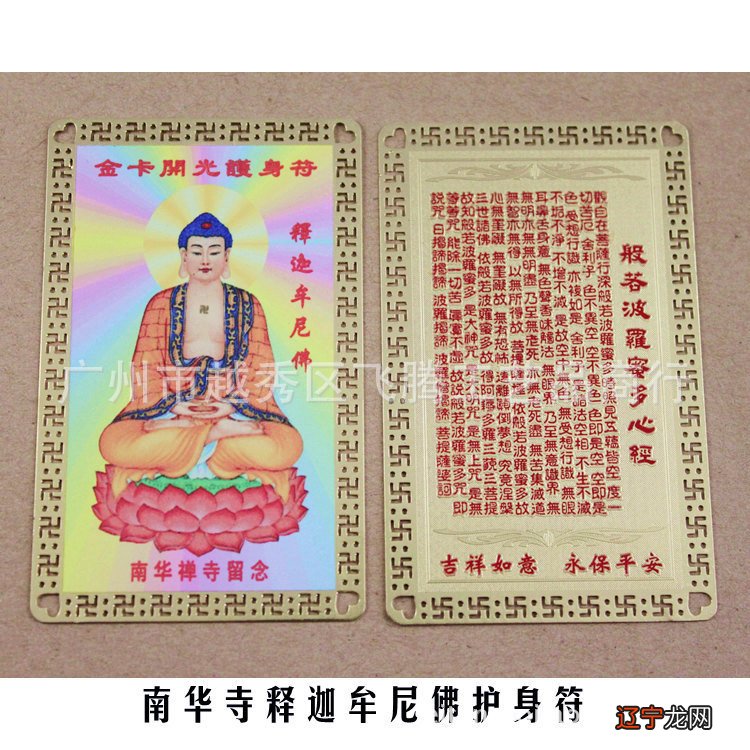 金卡開光護身符
釋迦牟尼佛
南华禅寺留念
般若波羅蜜多心經
觀自在菩薩行深般若波羅蜜多時照見五蘊皆空 度一
切苦厄 舍利子 色不異空 空不異色 色即是空 空即是
色 受想行識 亦複如是 舍利子 是諸法空相 不生不滅
不垢不淨 不增不減 是故空中無色 無受想行識 無眼
耳鼻舌身意 無色聲香味觸法 無眼界 乃至無意識界 無
無明亦無無明盡 乃至無老死 亦無老死盡 無苦集滅道
無智亦無得 以無所得故 菩提薩埵 依般若波羅蜜多故
心無罣礙 無罣礙故 無有恐怖 遠離顛倒夢想 究竟涅槃
三世諸佛 依般若波羅蜜多故 得阿耨多羅三藐三菩提
故知般若波羅蜜多 是大神咒 是大明咒 是無上咒 是無
等等咒 能除一切苦 真實不虛 故說般若波羅蜜多咒 即
說咒曰 揭諦揭諦 波羅揭諦 波羅僧揭諦 菩提薩婆訶
吉祥如意 永保平安
广州市越秀区飞腾 商行
南华寺释迦牟尼佛护身符
辽宁龙网